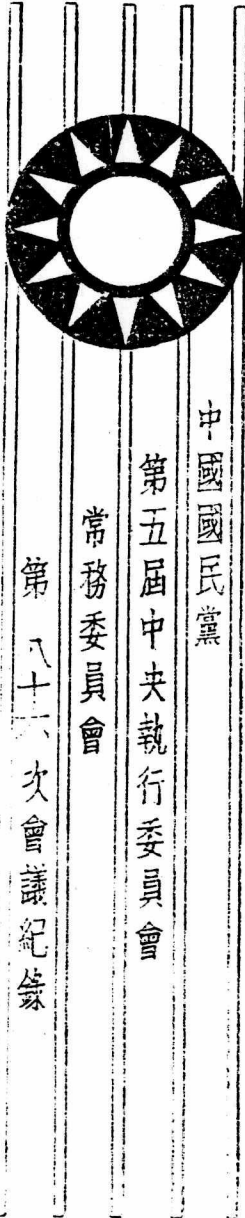 中國國民黨
第五屆中央執行委員會
常務委員會
第八十六次會議紀錄